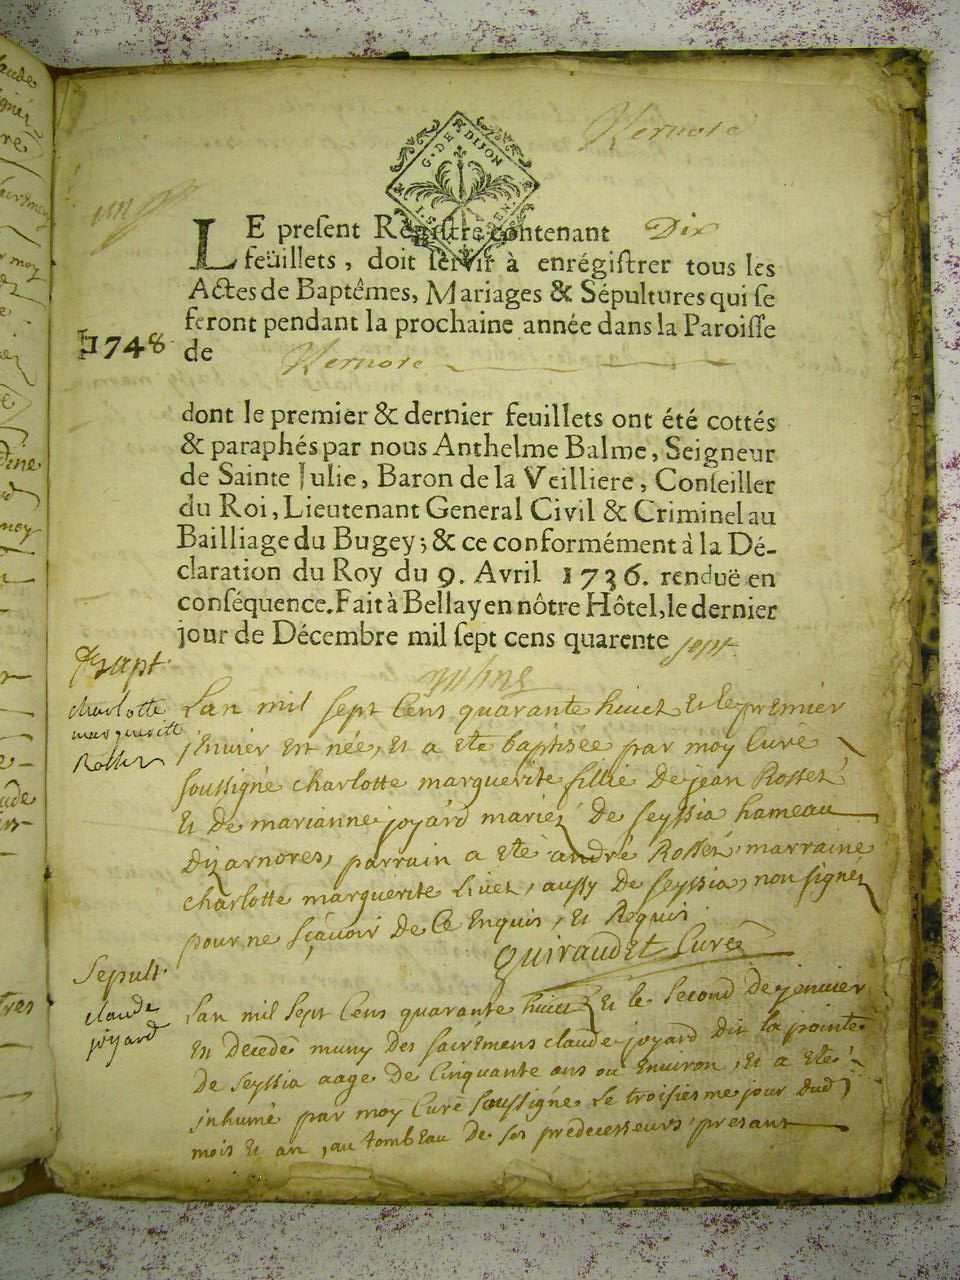 Vernote
G. DE DIJON
LE presſent Regiſtre contenant Dix
feüillets, doit ſervir à enrégiſtrer tous les
Actes de Baptêmes, Mariages & Sépultures qui ſe
feront pendant la prochaine année dans la Paroiſſe
1748
de Vernote
dont le premier & dernier feuillets ont été cottés
& paraphés par nous Anthelme Balme, Seigneur
de Sainte Julie, Baron de la Veilliere, Conſeiller
du Roi, Lieutenant General Civil & Criminel au
Bailliage du Bugey; & ce conformément à la Dé-
claration du Roy du 9. Avril 1736. renduë en
conſéquence. Fait à Bellay en nôtre Hôtel, le dernier
jour de Décembre mil ſept cens quarente sept
Bapt.
charlotte
marguerite
Rosset
Lan mil sept Cens quarante huict Et le premier
jenvier est née, Et a ete baptisée par moy Curé
soussigné charlotte marguerite fille De jean Rosset
Et De marianne joyard mariez De seyssia hameau
Dizarnores, parrain a ete andré Rosset, marraine
charlotte marguerite livet, aussy De seyssia, non signéz
pour ne sçavoir De Ce Enquis, Et Requis
Guiraudet Curé
Sepult.
claude
joyard
Lan mil sept Cens quarante huict Et le second De jenvier
Est Decedé muny Des sacremens claude joyard Dit la pointe
De seyssia aage De Cinquante ans ou Environ, Et a ete
inhumé par moy Curé soussigné le troisiesme jour Dud
mois Et an, au tombeau De ses predecesseurs presant